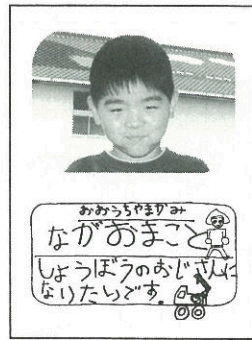 おおうちやまがみ
ながおまこと
しょうぼうのおじさんに
なりたいです。